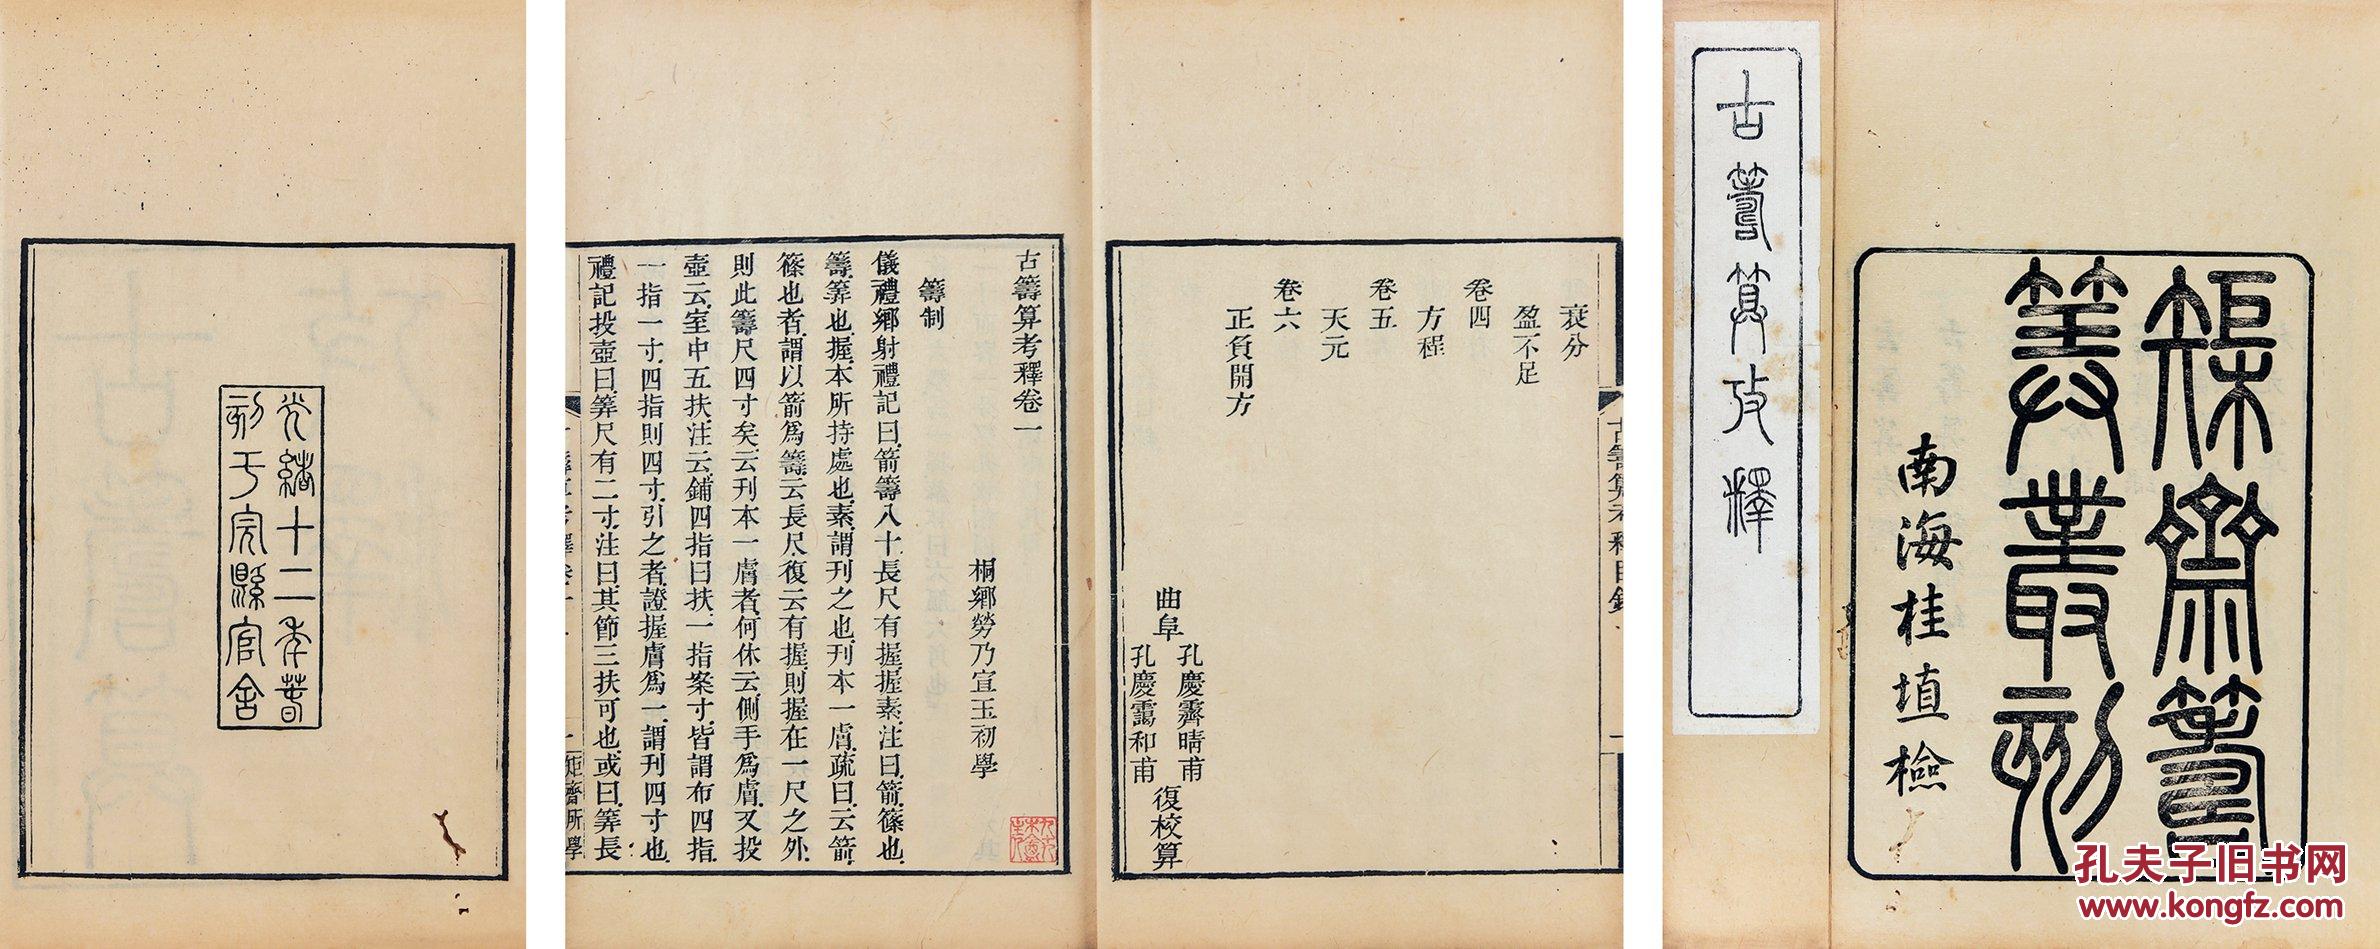 矩齋籌
算叢刻
南海桂埴檢
古籌算攷釋
衰分
盈不足
卷四
方程
卷五
天元
卷六
正負開方
曲阜
孔慶霽晴甫
孔慶靄和甫
復校算
古籌算考釋目錄
古籌算考釋卷一
桐鄉勞乃宣玉初學
籌制
儀禮鄉射禮記曰箭籌八十長尺有握握素注曰箭篠也
籌筭也握本所持處也素謂刊之也刊本一膚疏曰云箭
篠也者謂以箭爲籌云長尺復云有握則握在一尺之外
則此籌尺四寸矣云刊本一膚者何休云側手爲膚又投
壺云室中五扶注云鋪四指曰扶一指案寸皆謂布四指
一指一寸四指則四寸引之者證握膚爲一謂刊四寸也
禮記投壺曰筭尺有二寸注曰其節三扶可也或曰筭長
矩齋所學
光緒十二年春
刻于完縣官舍
孔夫子旧书网
www.kongfz.com